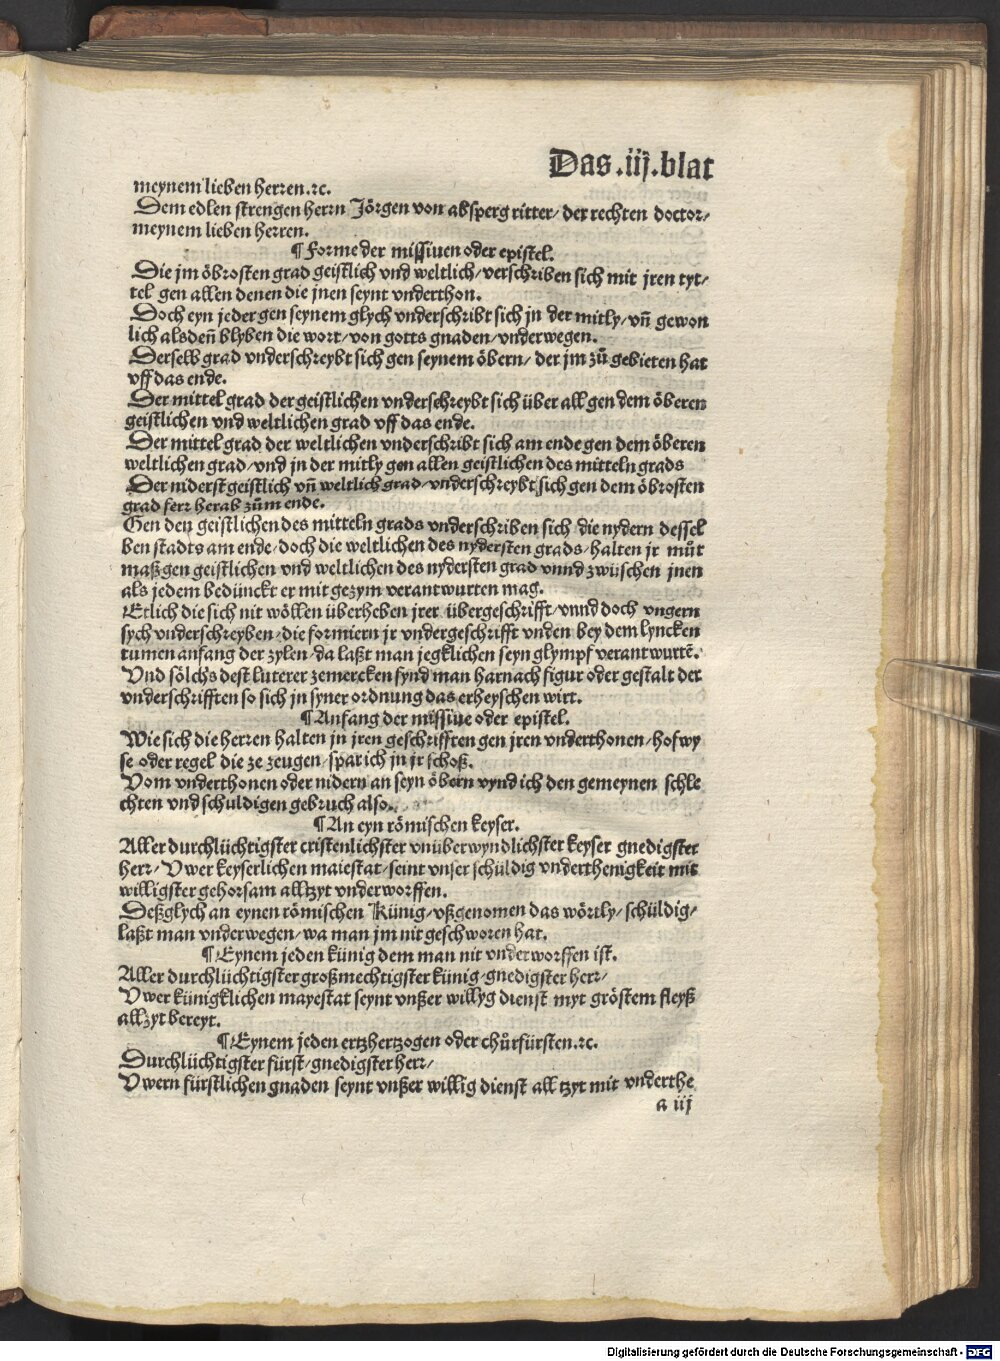 Das .iij. blat
meynem lieben herren.ꝛc.
Dem edlen strengen herrn Jörgen von absperg ritter/ der rechten doctor/
meynem lieben herren.
¶ Forme der missiuen oder epistel.
Die jm öbrosten grad geistlich vnd weltlich/ verschriben sich mit jren tyt/
tel gen allen denen die jnen seynt vnderthon.
Doch eyn jeder gen seynem glych vnderschribt sich jn der mitly/ vn̄ gewon
lich alsden̄ blyben die wort/ von gotts gnaden/ vnderwegen.
Derselb grad vnderschreybt sich gen seynem öbern/ der jm zů gebieten hat
vff das ende.
Der mittel grad der geistlichen vnderschreybt sich über all gen dem öberen
geistlichen vnd weltlichen grad vff das ende.
Der mittel grad der weltlichen vnderschribt sich am ende gen dem öberen
weltlichen grad/ vnd jn der mitly gen allen geistlichen des mitteln grads
Der niderst geistlich vn̄ weltlich grad/ vnderschreybt sich gen dem öbrosten
grad ferr herab zům ende.
Gen den geistlichen des mitteln grads vnderschriben sich die nydern dessel
ben stadts am ende/ doch die weltlichen des nydersten grads/ halten jr můt
maßgen geistlichen vnd weltlichen des nydersten grad vnnd zwüschen jnen
als jedem bedünckt er mit gezym verantwurten mag.
Etlich die sich nit wöllen überheben jrer übergeschrifft/ vnnd doch vngern
sych vnderschreyben/ die formiern jr vndergeschrifft vnden bey dem lyncken
tumen anfang der zylen/ da laßt man jegklichen seyn glympf verantwurtē.
Vnd sölchs dest luterer zemercken fynd man harnach figur oder gestalt der
vnderschrifften so sich jn syner ordnung das erheyschen wirt.
¶ Anfang der missiue oder epistel.
Wie sich die herren halten jn jren geschrifften gen jren vnderthonen/ hof wy
se oder regel die ze zeugen/ spar ich jn jr schoß.
Vom vnderthonen oder nidern an seyn öbern vynd ich den gemeynen schle
chten vnd schuldigen gebruch also.
¶ An eyn römischen keyser.
Aller durchlüchtigster cristenlichster vnüberwyndlichster keyser gnedigster
herr/ Vwer keyserlichen maiestat/ seint vnser schüldig vnderthenigkeit mit
willigster gehorsam alltzyt vnderworffen.
Deßglych an eynen römischen Künig/ vßgenomen das wörtly/ schüldig/
laßt man vnderwegen/ wa man jm nit geschworen hat.
¶ Eynem jeden künig dem man nit vnderworffen ist.
Aller durchlüchtigster großmechtigster künig/ gnedigster herr/
Vwer künigklichen mayestat seynt vnßer willyg dienst myt gröstem fleyß
allzyt bereyt.
¶ Eynem jeden ertzhertzogen oder chůrfürsten.ꝛc.
Durchlüchtigster fürst/ gnedigster herr/
Vwern fürstlichen gnaden seynt vnßer willig dienst all tzyt mit vnderthe
a iij
Digitalisierung gefördert durch die Deutsche Forschungsgemeinschaft - DFG